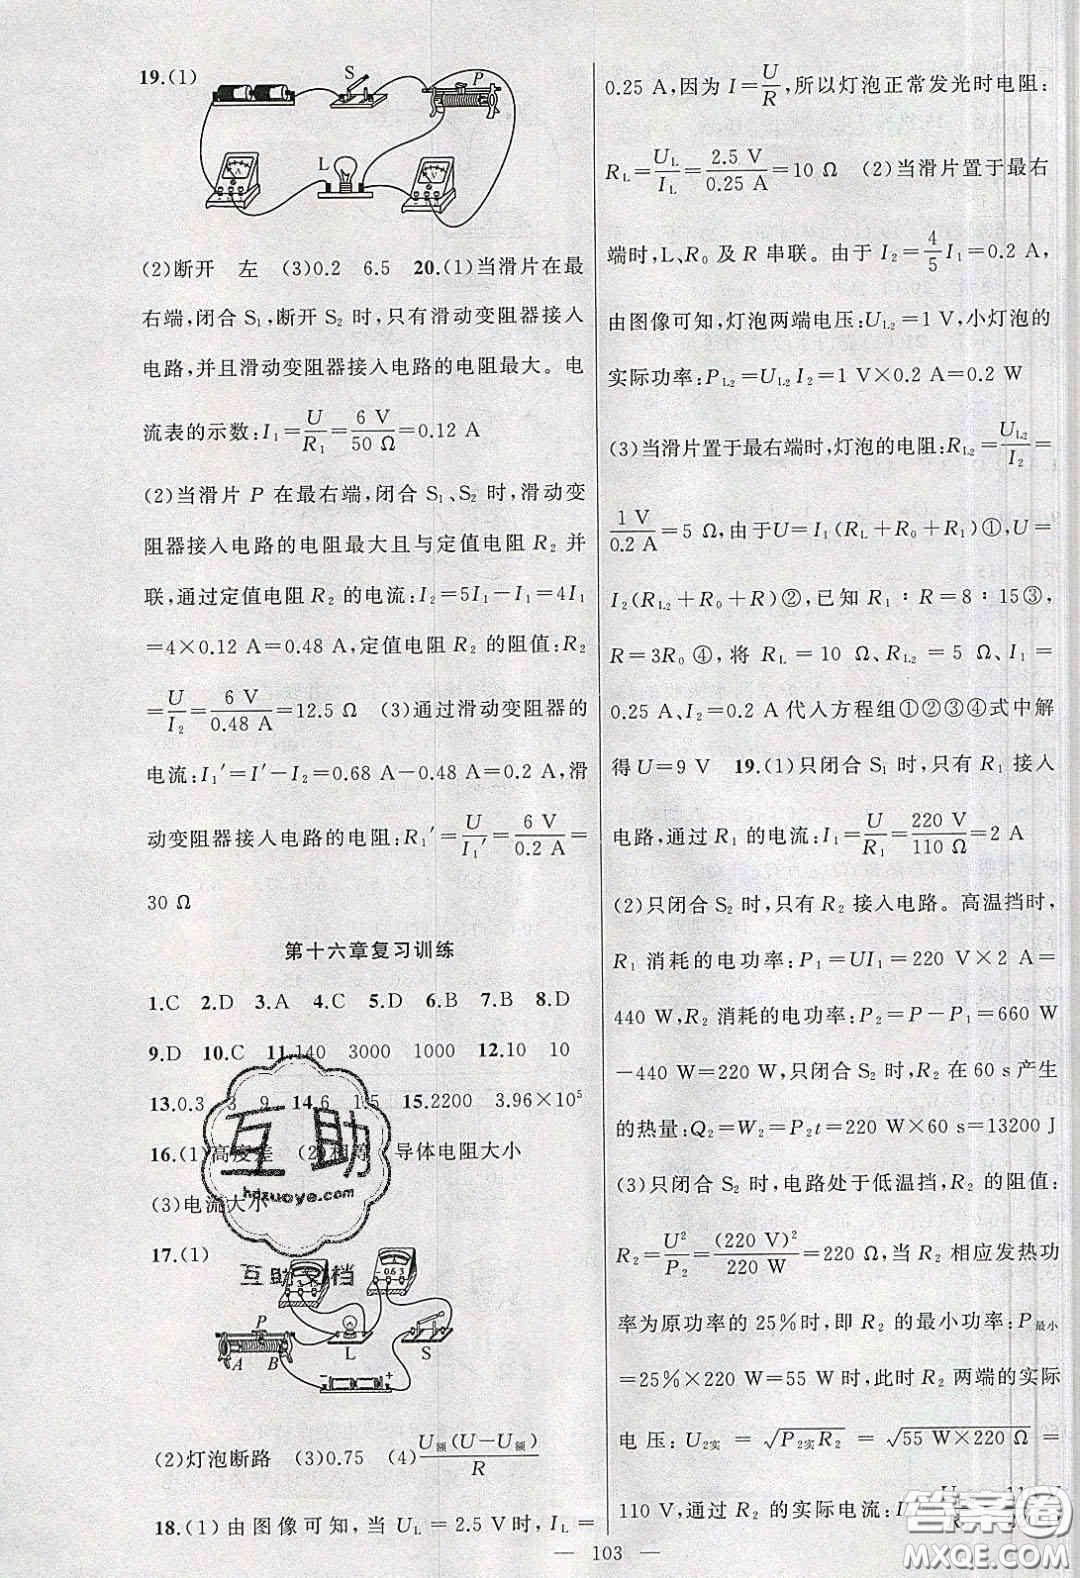 19.(1)
S
P
L
(2)断开 左 (3)0.2 6.5 20.(1)当滑片在最
右端,闭合 S₁,断开 S₂ 时,只有滑动变阻器接入
电路,并且滑动变阻器接入电路的电阻最大。电
流表的示数:I₁=U/R₁=6 V/50 Ω=0.12 A
(2)当滑片 P 在最右端,闭合 S₁、S₂ 时,滑动变
阻器接入电路的电阻最大且与定值电阻 R₂ 并
联,通过定值电阻 R₂ 的电流:I₂=5I₁-I₁=4I₁
=4×0.12 A=0.48 A,定值电阻 R₂ 的阻值:R₂
=U/I₂=6 V/0.48 A=12.5 Ω (3)通过滑动变阻器的
电流:I₁′=I′-I₂=0.68 A-0.48 A=0.2 A,滑
动变阻器接入电路的电阻:R₁′=U/I₁′=6 V/0.2 A=
30 Ω
第十六章复习训练
1.C 2.D 3.A 4.C 5.C 6.B 7.B 8.D
9.D 10.C 11.140 3000 1000 12.10 10
13.0.3 3 9 14.6 1.5 15.2200 3.96×10⁵
16.(1)高度差 (2)相等 导体电阻大小
(3)电流大小
17.(1)
P
A B L S
- +
(2)灯泡断路 (3)0.75 (4)U额(U-U额)/R
18.(1)由图像可知,当 U_L=2.5 V时,I_L=
0.25 A,因为 I=U/R,所以灯泡正常发光时电阻:
R_L=U_L/I_L=2.5 V/0.25 A=10 Ω (2)当滑片置于最右
端时,L、R₀ 及 R 串联。由于 I₂=4/5I₁=0.2 A,
由图像可知,灯泡两端电压:U_L2=1 V,小灯泡的
实际功率:P_L2=U_L2I₂=1 V×0.2 A=0.2 W
(3)当滑片置于最右端时,灯泡的电阻:R_L2=U_L2/I₂=
1 V/0.2 A=5 Ω,由于U=I₁(R_L+R₀+R₁)①,U=
I₂(R_L2+R₀+R)②,已知 R₁∶R=8∶15③,
R=3R₀ ④,将 R_L=10 Ω、R_L2=5 Ω、I₁=
0.25 A、I₂=0.2 A代入方程组①②③④式中解
得 U=9 V 19.(1)只闭合 S₁ 时,只有 R₁ 接入
电路,通过 R₁ 的电流:I₁=U/R₁=220 V/110 Ω=2 A
(2)只闭合 S₂ 时,只有 R₂ 接入电路。高温挡时,
R₁ 消耗的电功率:P₁=UI₁=220 V×2 A=
440 W,R₂ 消耗的电功率:P₂=P-P₁=660 W
-440 W=220 W,只闭合 S₂ 时,R₂ 在 60 s产生
的热量:Q₂=W₂=P₂t=220 W×60 s=13200 J
(3)只闭合 S₂ 时,电路处于低温挡,R₂ 的阻值:
R₂=U²/P₂=(220 V)²/220 W=220 Ω,当 R₂ 相应发热功
率为原功率的 25%时,即 R₂ 的最小功率:P最小
=25%×220 W=55 W时,此时 R₂ 两端的实际
电压:U₂实=√P₂实R₂=√55 W×220 Ω=
110 V,通过 R₂ 的实际电流:
— 103 —
互助
hdzuoye.com
互助文档
答案圈
MXQE.COM